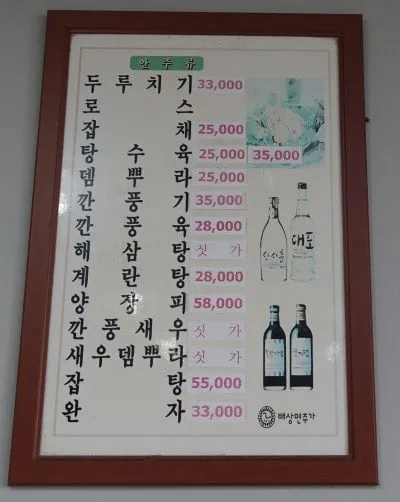 안주류
두루치기 33,000
로스
잡채 25,000
탕수육 25,000 35,000
뎀뿌라 25,000
깐풍기 35,000
깐풍육 28,000
해삼탕 싯가
계란탕 28,000
양장피 58,000
깐풍새우 싯가
새우뎀뿌라 싯가
잡탕 55,000
완자 33,000
산사춘
대포
배상면주가